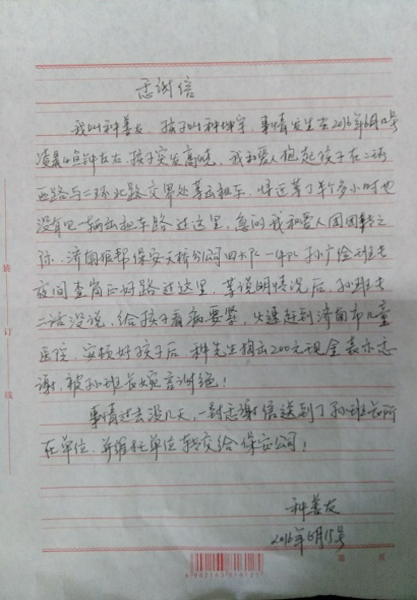 感谢信
我叫种善友，孩子叫种坤宇，事情发生在2016年6月12号
凌晨4点钟左右，孩子突发高烧，我和爱人抱起孩子在二环
西路与二环北路交界处等出租车，将近等了半个多小时也
没有见一辆出租车路过这里，急的我和爱人团团转之
际，济南狼帮保安天桥分公司四大队一中队孙广俭班长
夜间查岗正好路过这里，等说明情况后，孙班长
二话没说，给孩子看病要紧，火速赶到济南市儿童
医院，安顿好孩子后，种先生掏出200元现金表示感
谢，被孙班长婉言谢绝！
事情过去没几天，一封感谢信送到了孙班长所
在单位，并维托单位转交给保安公司！
种善友
2016年6月15号
装
订
线
第 页